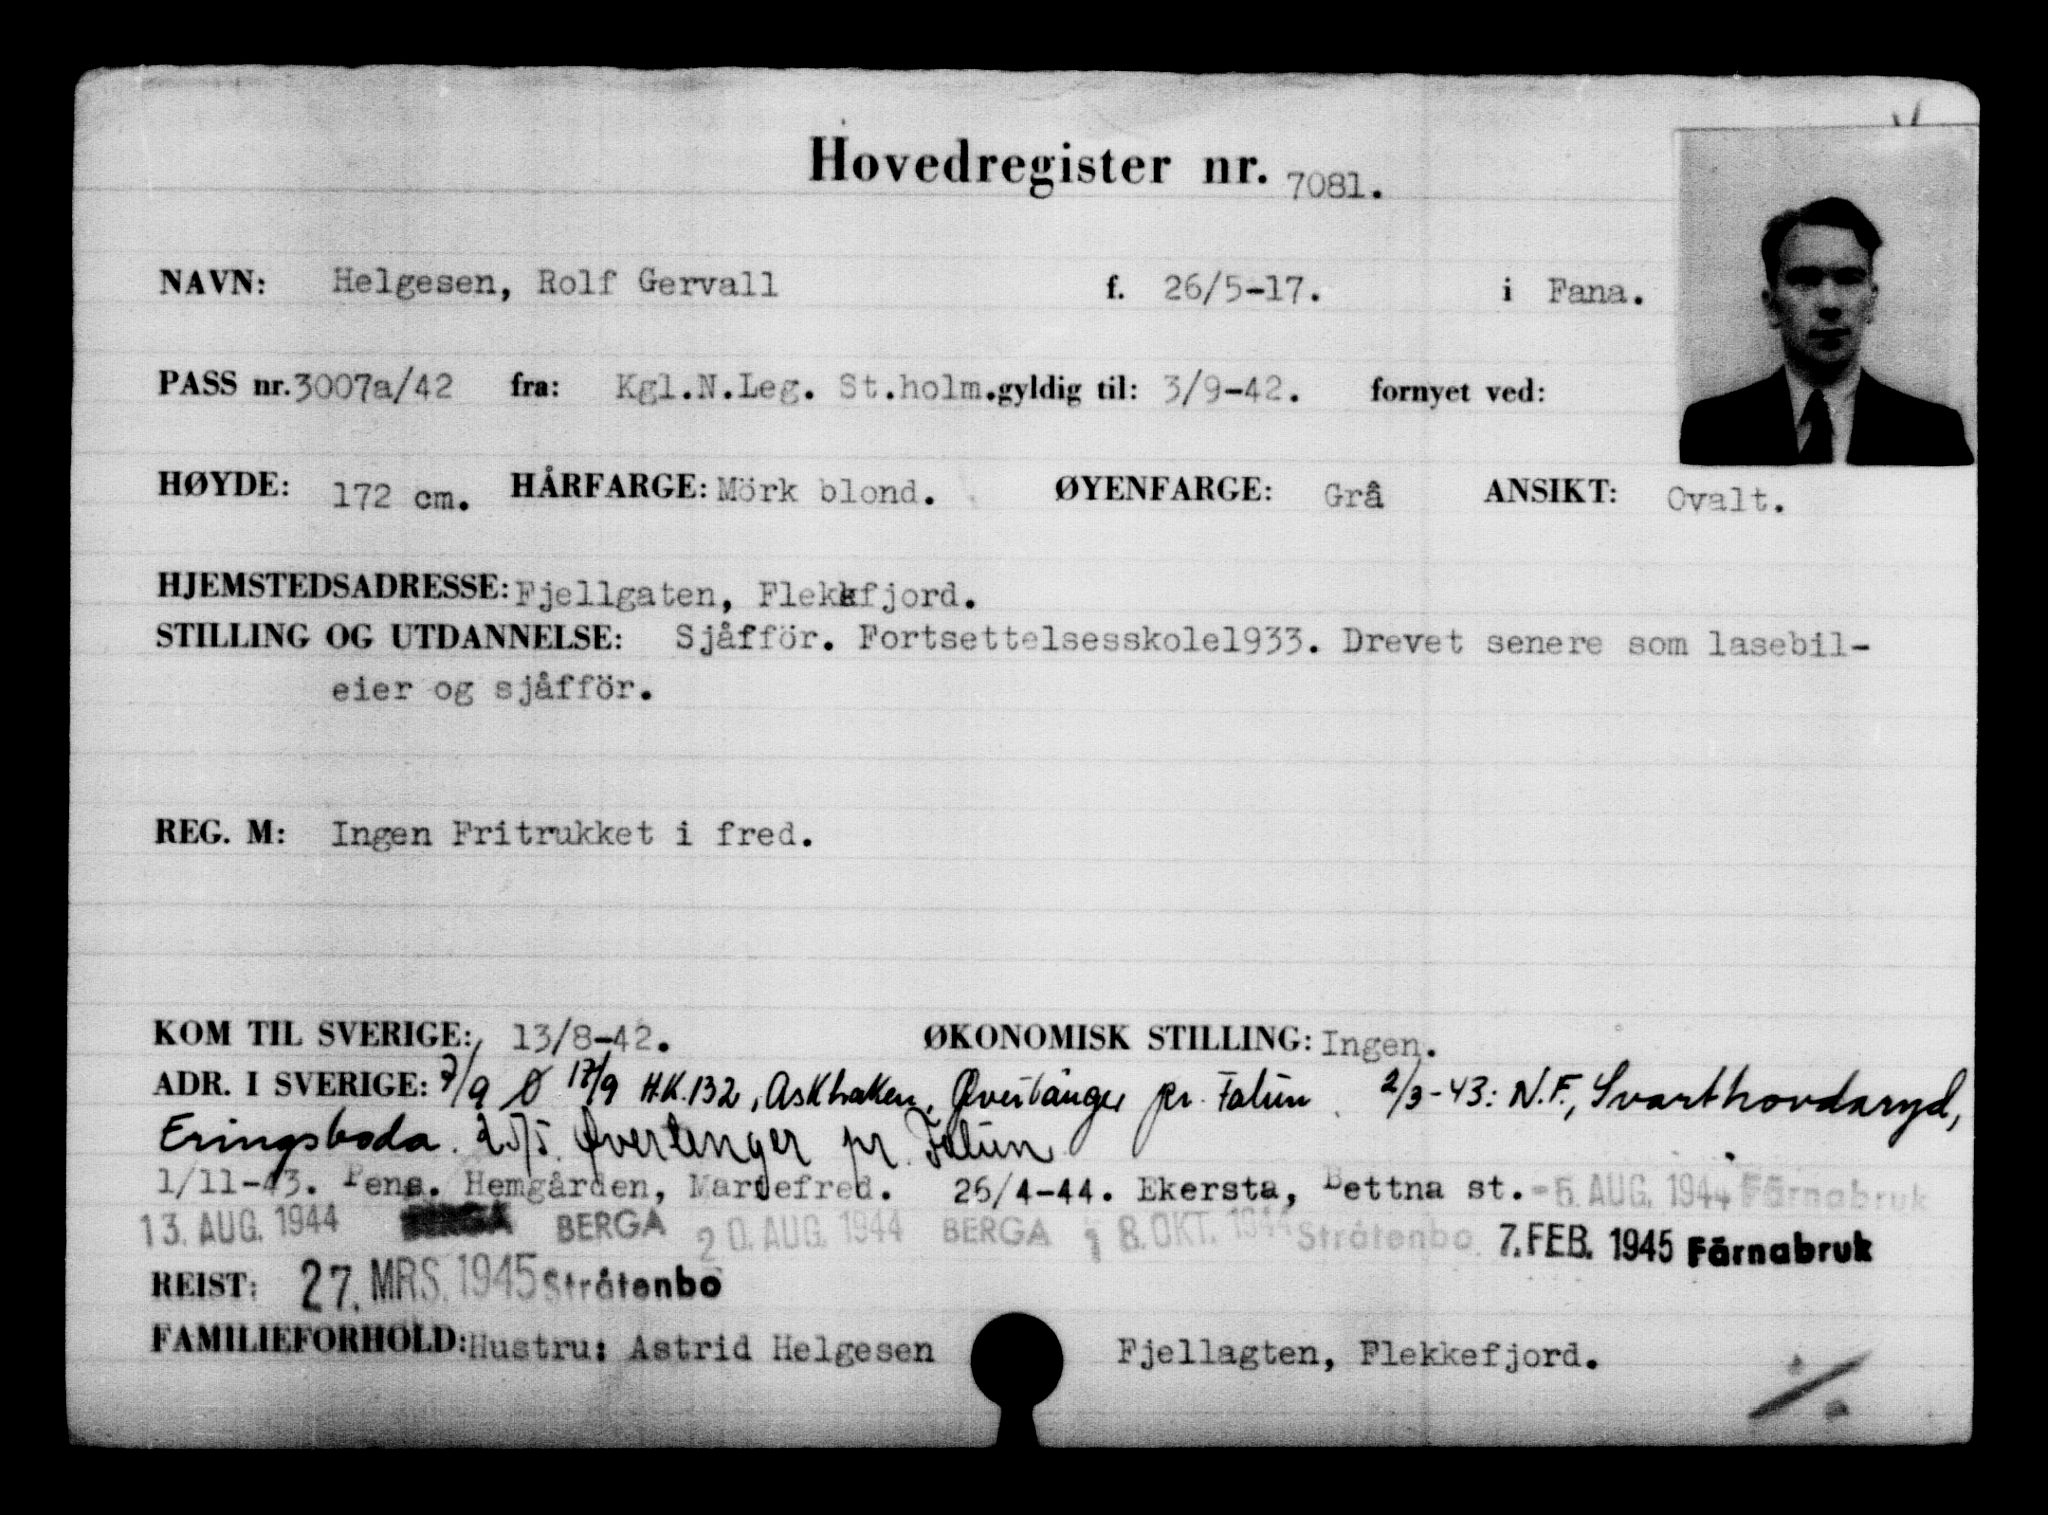 Hovedregister nr. 7081.
NAVN: Helgesen, Rolf Gervall f. 26/5-17. i Fana.
PASS nr. 3007a/42 fra: Kgl.N.Leg. St.holm. gyldig til: 3/9-42. fornyet ved:
HØYDE: 172 cm. HÅRFARGE: Mörk blond. ØYENFARGE: Grå ANSIKT: Ovalt.
HJEMSTEDSADRESSE: Fjellgaten, Flekkfjord.
STILLING OG UTDANNELSE: Sjåfför. Fortsettelsesskole1933. Drevet senere som lasebil-
eier og sjåfför.
REG. M: Ingen Fritrukket i fred.
KOM TIL SVERIGE: 13/8-42. ØKONOMISK STILLING: Ingen.
ADR. I SVERIGE: 7/9 Ø 17/9 H.K.132, Askbaken, Øvertånger pr. Falun 2/3-43: N.F., Svarthovdaryd,
Eringsboda. 25/5. Øvertenger pr. Falun
1/11-43. Pens. Hemgården, Mariefred. 26/4-44. Ekersta, Bettna st. -5. AUG. 1944 Färnabruk
13. AUG. 1944 BERGA BERGA 20. AUG. 1944 BERGA 18. OKT. 1944 Stråtenbo 7. FEB. 1945 Färnabruk
REIST: 27. MRS. 1945 Stråtenbo
FAMILIEFORHOLD: Hustru: Astrid Helgesen Fjellagten, Flekkefjord.